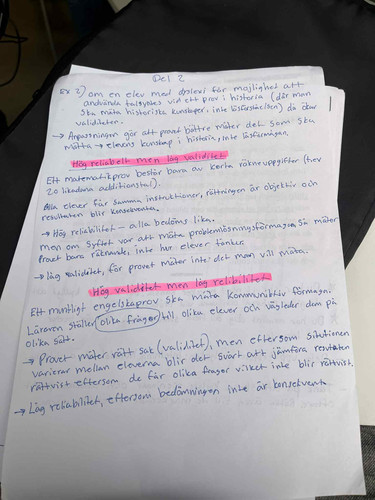 Del 2
Ex 2) om en elev med dyslexi får möjlighet att
använda talsyntes vid ett prov i historia (där man
ska mäta historiska kunskaper, inte läsförståelsen) då ökar
validiteten.
→ Anpassningen gör att provet bättre mäter det som ska
mätta → elevens kunskap i historia, inte läsförmågan.
Hög reliabelt men låg validitet
Ett matematikprov består bara av korta räkneuppgifter (tex
20 likadana additionstal).
Alla elever får samma instruktioner, rättningen är objektiv och
resultaten blir konsekventa.
→ Hög reliabilitet – alla bedöms lika.
men om syftet var att mäta problemlösningsförmågan, så mäter
Provet bara räknande, inte hur elever tänker.
→ låg validitet, för provet mäter inte det man vill mäta.
Hög validitet men låg relibilitet
Ett muntligt engelskaprov ska mäta kommunikativ förmåga.
Läraren ställer olika frågor till olika elever och vägleder dem på
olika sätt.
→ Provet mäter rätt sak (validitet), men eftersom situtionen
varierar mellan eleverna blir det svårt att jämföra resultaten
rättvist eftersom de får olika frågor vilket inte blir rättvist.
→ Låg reliabilitet, eftersom bedömningen inte är konsekvent.